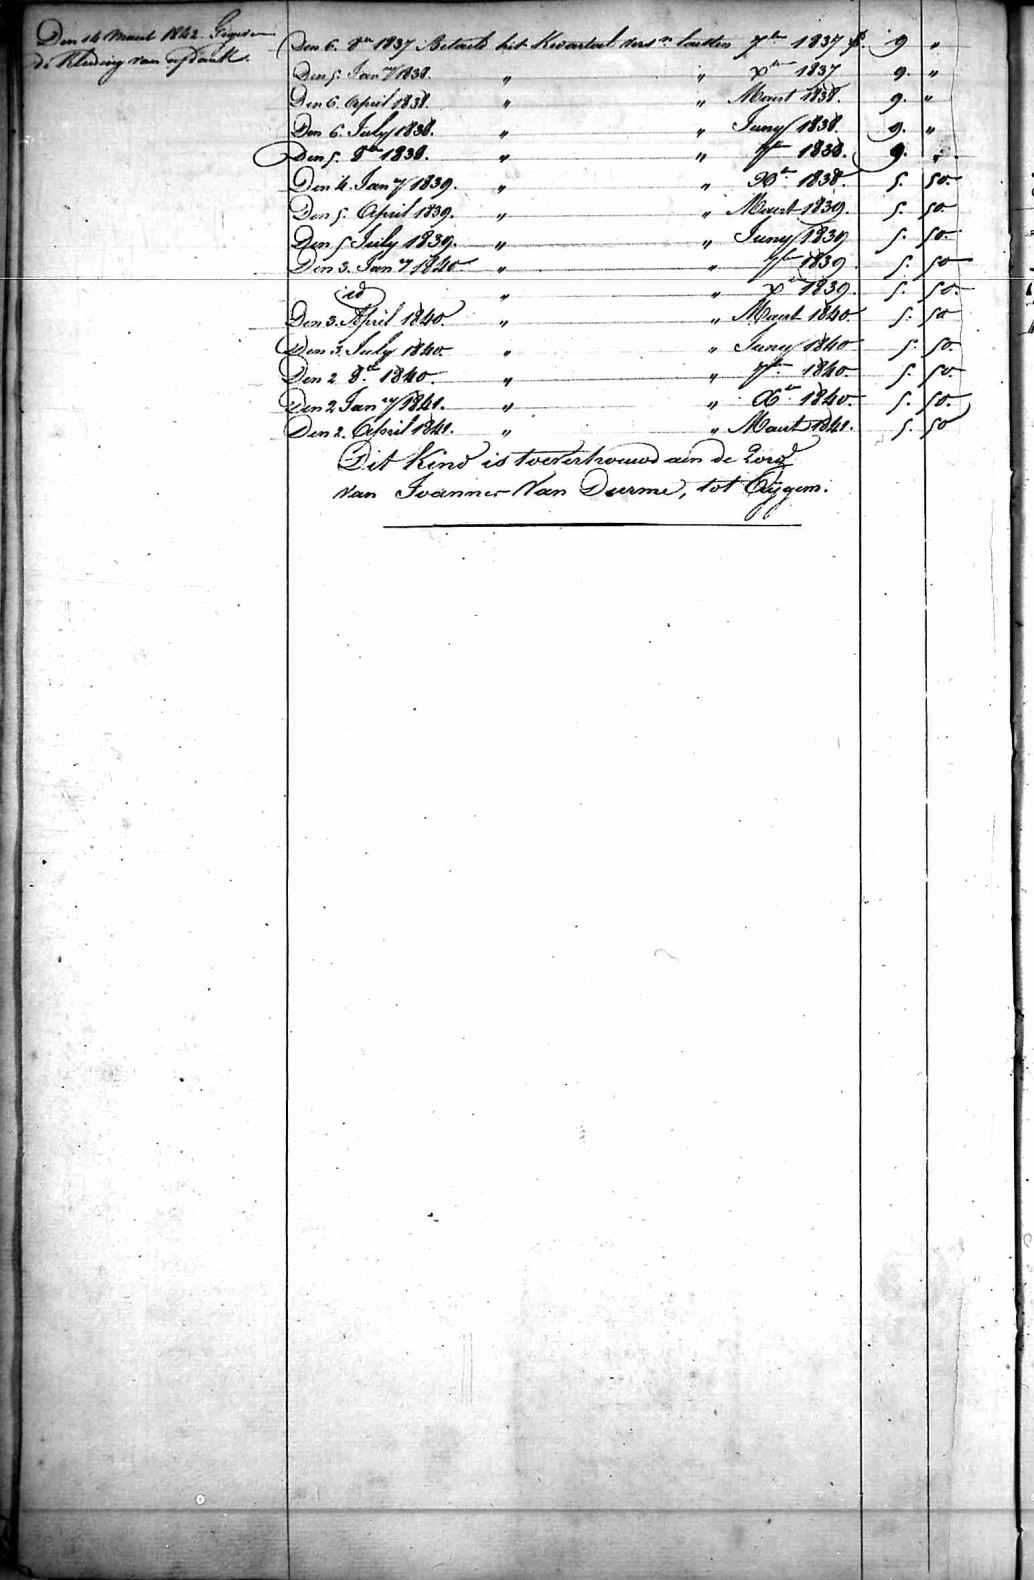 Den 14 Maert 1842. Gegeven
de Kleeding van afdank.
Den 6. 8er 1837 Betaeld het Kwartael versn laetsten 7ber 1837 f. 9 "
Den 5. Jany 1838. " " Xber 1837 9. "
Den 6. April 1838. " " Maert 1838. 9. "
Den 6. July 1838. " " Juny 1838. 9. "
Den 5. 8er 1838. " " 7ber 1838. 9. "
Den 4. Jany 1839. " " Xber 1838. 5. 50.
Den 5. April 1839. " " Maert 1839. 5. 50.
Den 5 July 1839. " " Juny 1839 5. 50.
Den 3. Jany 1840 " " 7ber 1839 5. 50
id " " Xber 1839. 5. 50.
Den 3. April 1840. " " Maert 1840. 5. 50
Den 3. July 1840. " " Juny 1840 5. 50.
Den 2. 8er 1840. " " 7ber 1840. 5. 50.
Den 2 Jany 1841. " " Xber 1840. 5. 50.
Den 2. April 1841. " " Maert 1841. 5. 50
Dit Kind is toevertrouwd aen de Zorg
van Joannes Van Deurme, tot Eijgem.